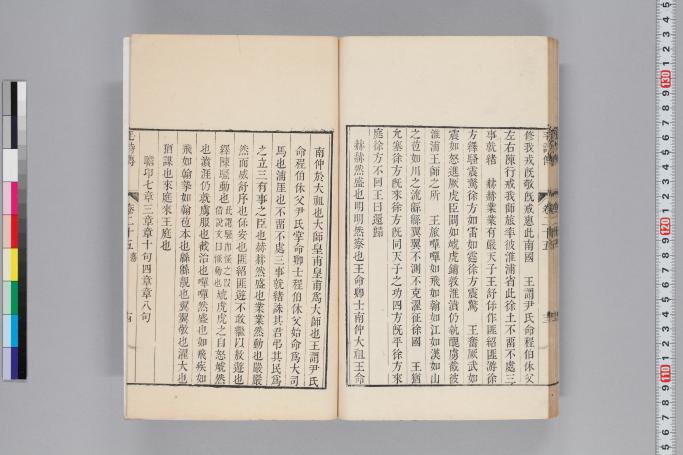 修我戎旣敬旣戒惠此南國　王謂尹氏命程伯休父
左右陳行戒我師旅率彼淮浦省此徐土不畱不處三
事就緒　赫赫業業有嚴天子王舒保作匪紹匪游徐
方繹騷震驚徐方如雷如霆徐方震驚　王奮厥武如
震如怒進厥虎臣闞如虓虎鋪敦淮濆仍執醜虜截彼
淮浦王師之所　王旅嘽嘽如飛如翰如江如漢如山
之苞如川之流緜緜翼翼不測不克濯征徐國　王猶
允塞徐方旣來徐方旣同天子之功四方旣平徐方來
庭徐方不回王曰還歸
赫赫然盛也明明然察也王命卿士南仲大祖王命
南仲於大祖也大師皇甫皇甫爲大師也王謂尹氏
命程伯休父尹氏掌命卿士程伯休父始命爲大司
馬也浦厓也不畱不處三事就緒誅其君弔其民爲
之立三有事之臣也赫赫然盛也業業然動也嚴嚴
然而威舒序也保安也匪紹匪遊不敢繼以敖遊也
繹陳騷動也
虓虎虎之自怒虓然
也濆涯仍就虜服也截治也嘽嘽然盛也如飛疾如
飛如翰摯如翰苞本也緜緜靚也翼翼敬也濯大也
猶謀也來庭來王庭也
瞻卬七章三章章十句四章章八句
毛詩傳　卷二十五